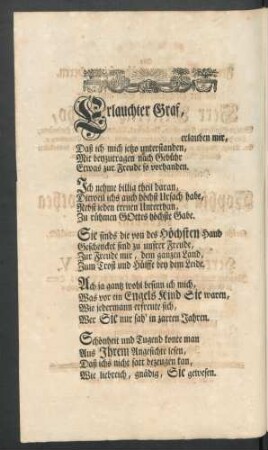 Erlauchter Graf,
erlauben mir,
Daß ich mich jetzo unterstanden,
Mit beyzutragen nach Gebühr
Etwas zur Freude so vorhanden.
Ich nehme billig theil daran,
Dieweil ichs auch höchst Ursach habe,
Nebst jeden treuen Unterthan,
Zu rühmen GOttes höchste Gabe.
Sie sinds die von des Höchsten Hand
Geschencket sind zu unsrer Freude,
Zur Freude mir, dem ganzen Land,
Zum Trost und Hülffe bey dem Leide.
Ach ja gantz wohl besinn ich mich,
Was vor ein Engels Kind Sie waren,
Wie jedermann erfreute sich,
Wer Sie nur sah' in zarten Jahren.
Schönheit und Tugend konte man
Aus Ihrem Angesichte lesen,
Daß ichs nicht satt bezeugen kan,
Wie liebreich, gnädig, Sie gewesen.